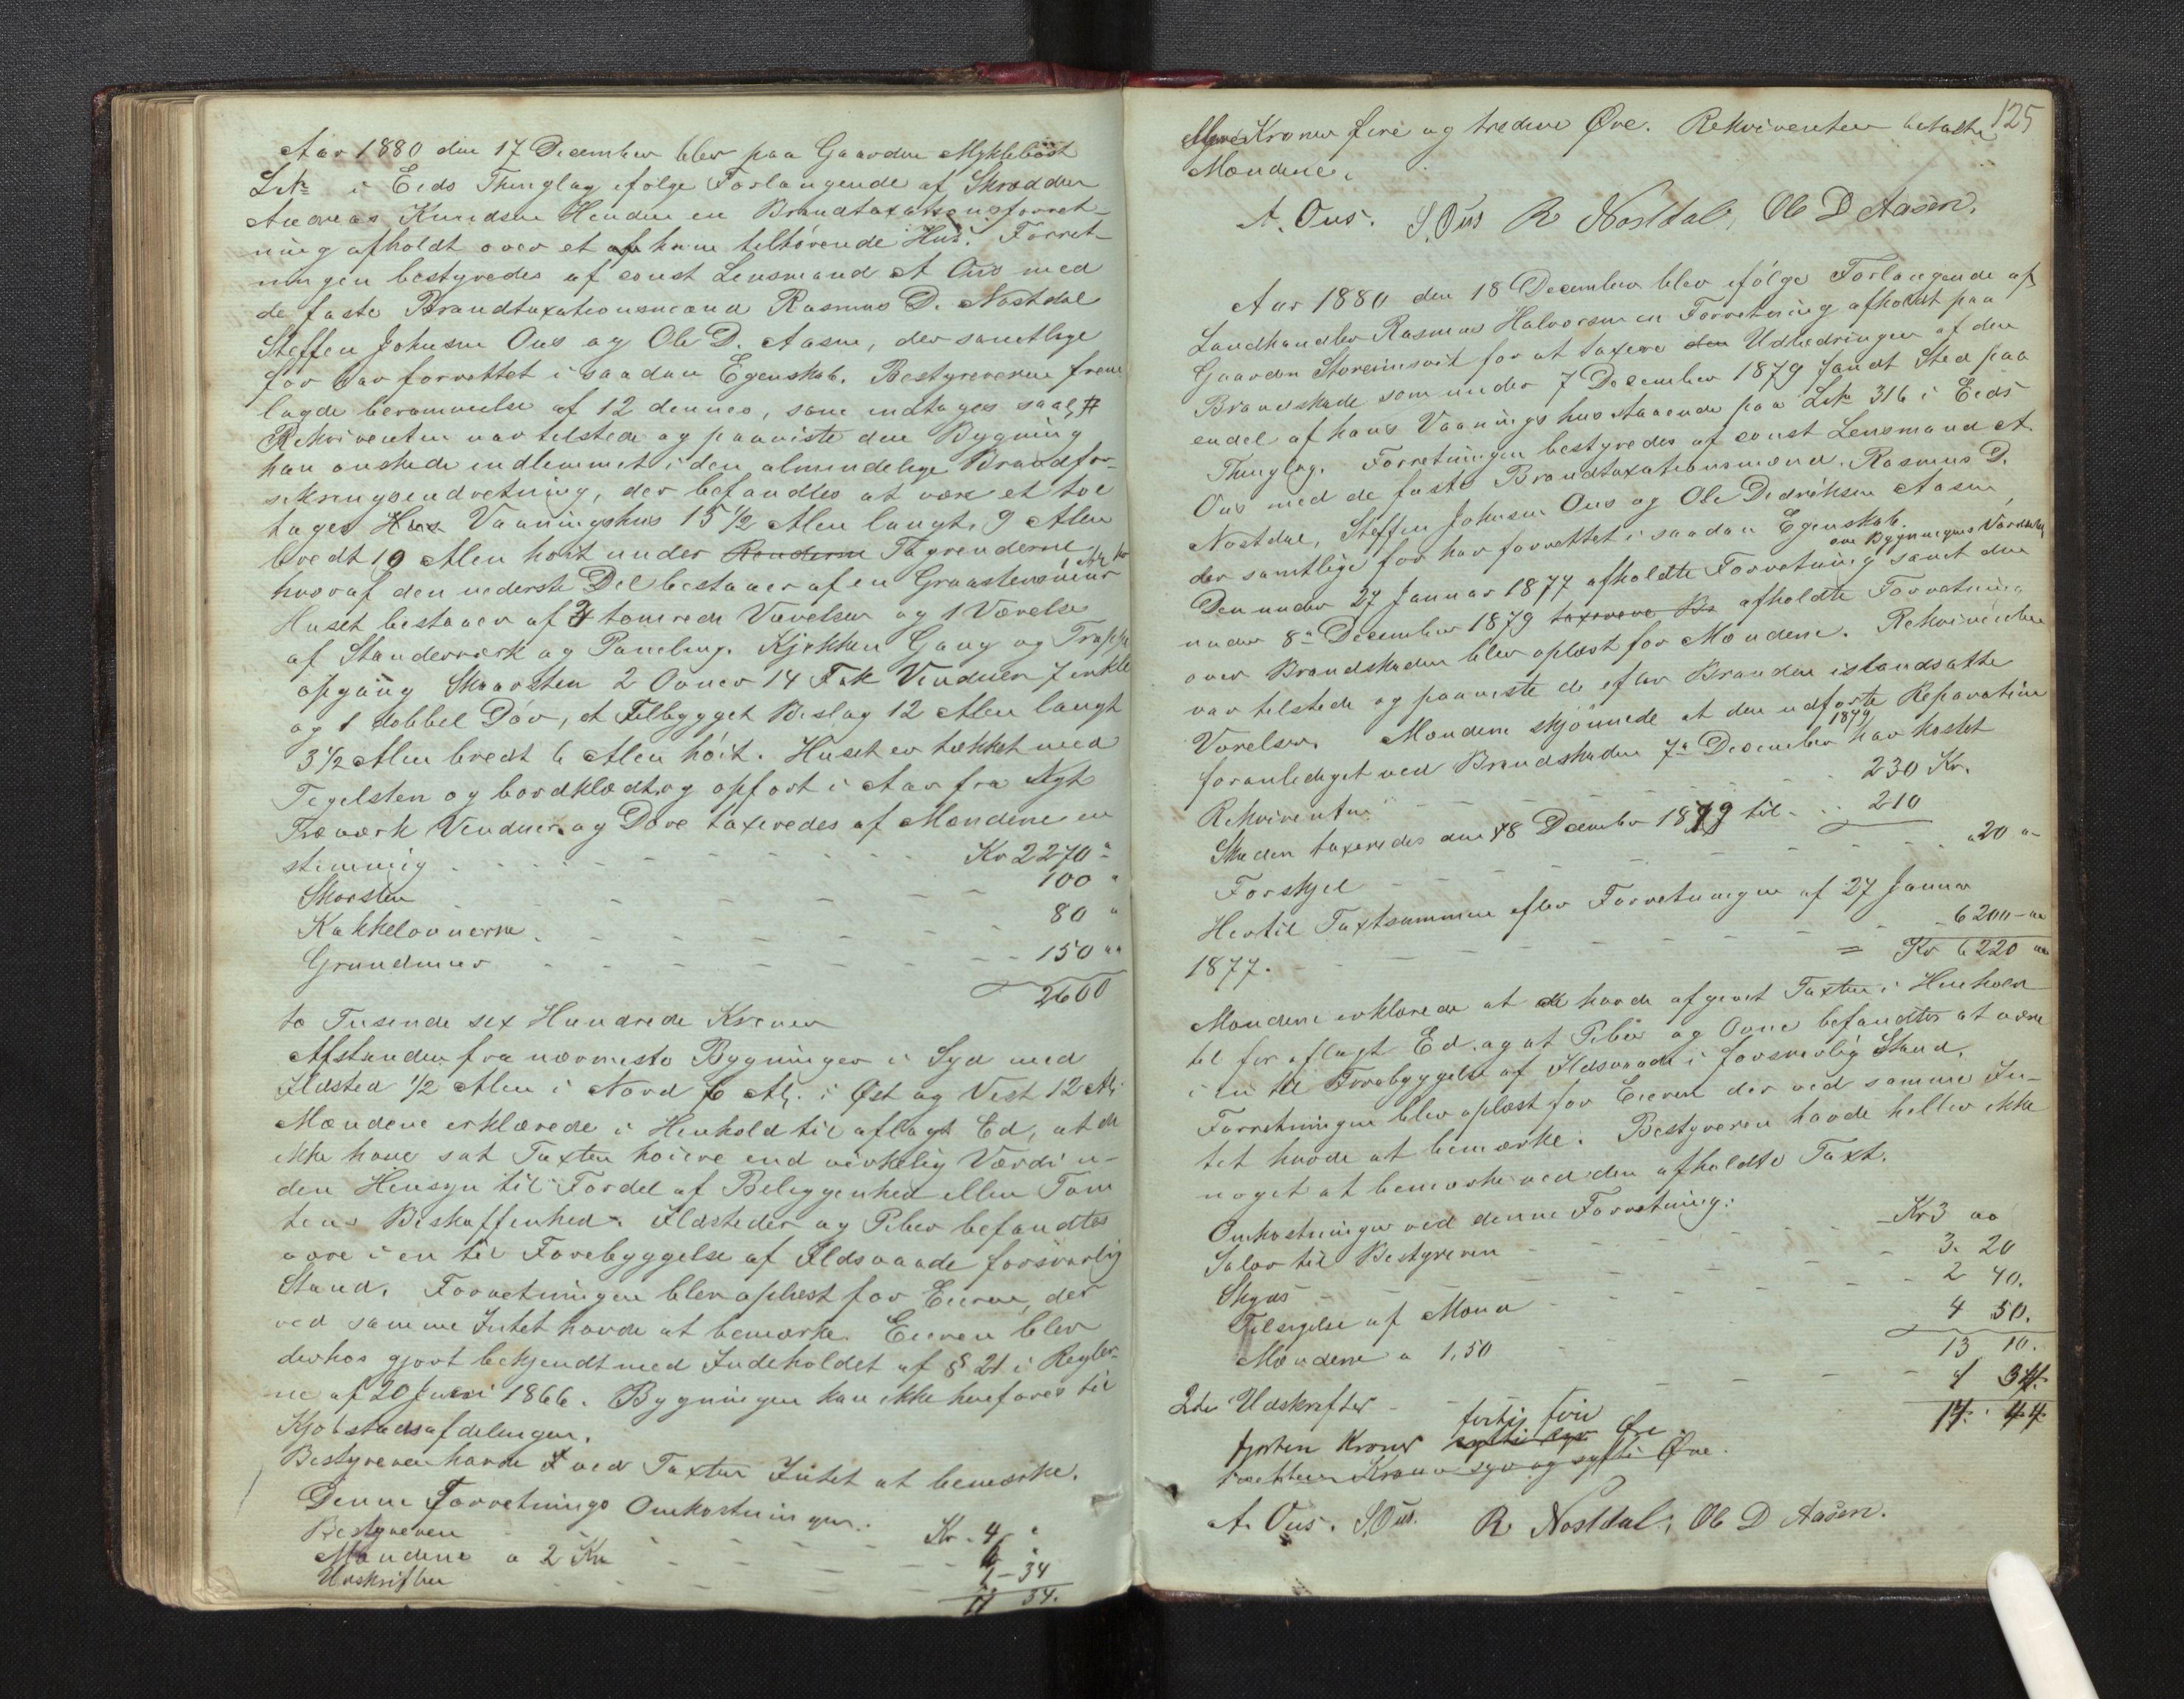 Aar 1880 den 17 December blev paa Gaarden Myklebost
L№ i Eids Thinglag ifølge Forlangende af Skrædder
Andreas Knudsen Henden en Brandtaxationsforret-
ning afholdt over et af ham tilhørende Hus. Forret-
ningen bestyredes af const Lensmand A Ous med
de faste Brandtaxationsmænd Rasmus D. Nøstdal
Steffen Johnsen Ous og Ole D. Aasen, der samtlige
før har forrettet i saadan Egenskab. Bestyreren frem
lagde berammelse af 12 dennes, som indtages saal. #
Rekvirenten var tilstede og paaviste den Bygning
han ønskede indlemmet i den almindelige Brandfor-
sikringsindretning, der befandtes at være et toe
tages Hus Vaaningshus 15 1/2 Alen langt, 9 Alen
bredt 10 Alen høit under Renderne Tagrenderne
hvoraf den nederste Del bestaaer af en Graastensmur
Huset bestaaer af 7 tømrede Værelser og 1 Værelse
af Standerværk og Paneling. Kjøkken Gang og Trappe
opgang Skorsten 2 Ovner 14 Fak Vinduer 7 enkle
og 1 dobbel Dør, et Tilbygget Beslag 12 Alen langt
3 1/2 Alen bredt 6 Alen høit. Huset er tækket med
Tegelsten og bordklædt og opført i Aar fra Nyt
Træværk Vinduer og Døre taxeredes af Mændene en
stemmig Kr 2270 "
Skorsten 100 "
Kakkelovnerne 80 "
Grundmur 150 "
2600
to Tusende sex Hundrede Kroner
Afstanden fra nærmeste Bygninger i Syd med
Ildsted 1/2 Alen i Nord 6 Al. i Øst og Vest 12 Al.
Mændene erklærede i Henhold til aflagt Ed, at de
ikke have sat Taxten høiere end virkelig Værdi u-
den Hensyn til Fordel af Beliggenhed eller Tom
tens Beskaffenhed. Ildsteder og Piber befandtes
være i en til Forebyggelse af Ildsvaade forsvarlig
Stand. Forretningen blev oplæst for Eieren, der
ved samme Intet havde at bemærke. Eieren blev
derhos gjort bekjendt med Indeholdet af § 21 i Regler-
ne af 20 Juni 1866. Bygningen kan ikke henføres til
Kjøbstadsafdelingen.
Bestyreren havde ved Taxten Intet at bemærke.
Denne Forretnings Omkostninger:
Bestyreren Kr. 4 "
Mændene a 2 Kr 6
Udskrifter 1 - 34
11 34.
125
Kroner fire og tredive Øre. Rekvirenten betalte
Mændene.
A. Ous. S. Ous R Nøstdal, Ole D Aasen.
Aar 1880 den 18 December blev ifølge Forlangende af
Landhandler Rasmus Halvorsen en Forretning afholdt paa
Gaarden Storeimsvik for at taxere den Udbedringen af den
Brandskade som under 7 December 1879 fandt Sted paa
endel af hans Vaaningshus staaende paa L№ 316 i Eids
Thinglag. Forretningen bestyredes af const Lensmand A.
Ous med de faste Brandtaxationsmænd. Rasmus D.
Nøstdal, Steffen Johnsen Ous og Ole Didriksen Aasen,
der samtlige før har forrettet i saadan Egenskab.
om Bygningens Værdi
Den under 27 Januar 1877 afholdte Forretning samt den
under 8de December 1879 taxerede Br afholdte Forretning
over Brandskaden blev oplæst for Mændene. Rekvirenten
var tilstede og paaviste de efter Branden istandsatte
Værelser. Mændene skjønnede at den udførte Reparation
1879
foranlediget ved Brandskaden 7de December har kostet
Rekvirenten 230 Kr.
Skaden taxeredes den 8 December 1879 til 210
Forskjel 20 "
Hertil Taxtsummen efter Forretningen af 27 Januar
1877. 6200 - "
= Kr 6220 "
Mændene erklærede at de havde afgivet Taxten i Henhold
til før aflagt Ed. og at Piber og Ovne befandtes at være
i en til Forebyggelse af Ildsvaade i forsvarlig Stand.
Forretningen blev oplæst for Eieren der ved samme In-
tet havde at bemærke. Bestyreren havde heller ikke
noget at bemærke ved den afholdte Taxt.
Omkostninger ved denne Forretning:
Salær til Bestyreren Kr 3 "
Skyds 3. 20
Tilsigelse af Mænd 2 40.
Mændene a 1,50 4 50.
13 10.
2de Udskrifter 1 34.
14. 44
fjorten Kroner forti fire Øre.
A. Ous. S. Ous. R Nøstdal, Ole D Aasen.